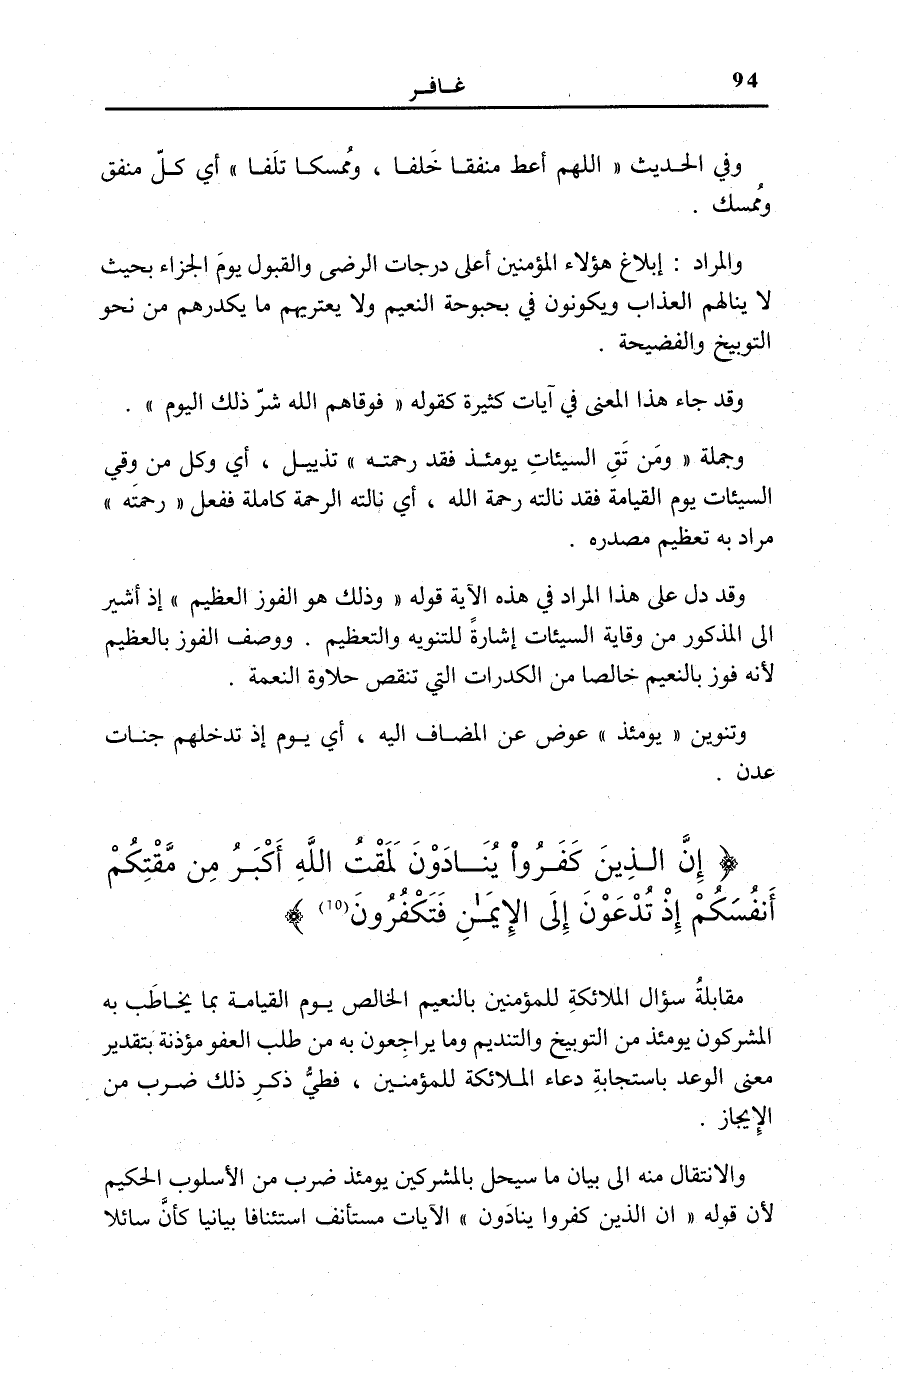 94
غــافــر
وفي الحــديث « اللهم أعط منفقـا خَلفـا ، ومُمسكـا تلَفـا » أي كـلّ منفق
ومُمسك .
والمراد : إبلاغ هؤلاء المؤمنين أعلى درجات الرضى والقبول يومَ الجزاء بحيث
لا ينالهم العذاب ويكونون في بحبوحة النعيم ولا يعتريهم ما يكدرهم من نحو
التوبيخ والفضيحة .
وقد جاء هذا المعنى في آيات كثيرة كقوله « فوقاهم الله شرّ ذلك اليوم » .
وجملة « ومَن تَقِ السيئاتِ يومئـذ فقد رحمتـه » تذييـل ، أي وكل من وقي
السيئات يوم القيامة فقد نالته رحمة الله ، أي نالته الرحمة كاملة ففعل « رحمتَه »
مراد به تعظيم مصدره .
وقد دل على هذا المراد في هذه الآية قوله « وذلك هو الفوز العظيم » إذ أشير
الى المذكور من وقاية السيئات إشارةً للتنويه والتعظيم . ووصف الفوز بالعظيم
لأنه فوز بالنعيم خالصا من الكدرات التي تنقص حلاوة النعمة .
وتنوين « يومئذ » عوض عن المضـاف اليه ، أي يـوم إذ تدخلهم جنـات
عدن .
﴿ إِنَّ الـذِينَ كَفَـرُواْ يُنَـــادَوْنَ لَمَقْتُ اللَّهِ أَكْبَـرُ مِن مَّقْتِكُمْ
أَنفُسَكُمْ إِذْ تُدْعَوْنَ إِلَى الإِيمَـٰنِ فَتَكْفُرُونَ(١٥) ﴾
مقابلةُ سؤال الملائكةِ للمؤمنين بالنعيم الخالص يـوم القيامـة بما يخـاطَب به
المشركون يومئذ من التوبيخ والتنديم وما يراجِعون به من طلب العفو مؤذنة بتقدير
معنى الوعد باستجابةِ دعاء المـلائكة للمؤمنـين ، فطيُّ ذكـرِ ذلك ضـرب من
الإيجاز .
والانتقال منه الى بيان ما سيحل بالمشركين يومئذ ضرب من الأسلوب الحكيم
لأن قوله « ان الذين كفروا ينادَون » الآيات مستأنف استئنافا بيانيا كأنَّ سائلا